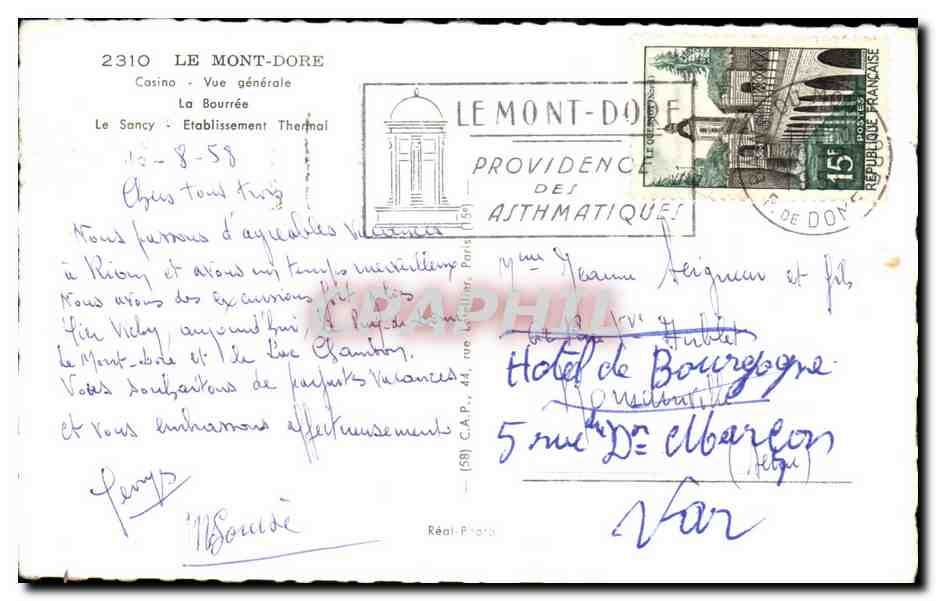 2310 LE MONT-DORE
Casino - Vue générale
La Bourrée
Le Sancy - Etablissement Thermal
8-58
Chers tous trois
Nous passons d'agréables vacances
à Riom et avons un temps merveilleux
Nous avons des excursions
Hier Vichy, aujourd'hui, le Puy-de-Dôme
le Mont-Dore et le Lac Chambon.
Vous souhaitons de parfaites vacances
et vous embrassons affectueusement
LE MONT-DORE
PROVIDENCE
DES
ASTHMATIQUES
LE QUESNOY (NORD)
15F
POSTES
REPUBLIQUE FRANÇAISE
P. DE DOME
(58) C.A.P., 44, rue Letellier, Paris (15e)
Réal-Photo
CRAPHIL
Mme Jeanne Seigneur et fils
Hotel de Bourgogne
5 rue du Dr Marçon
Var